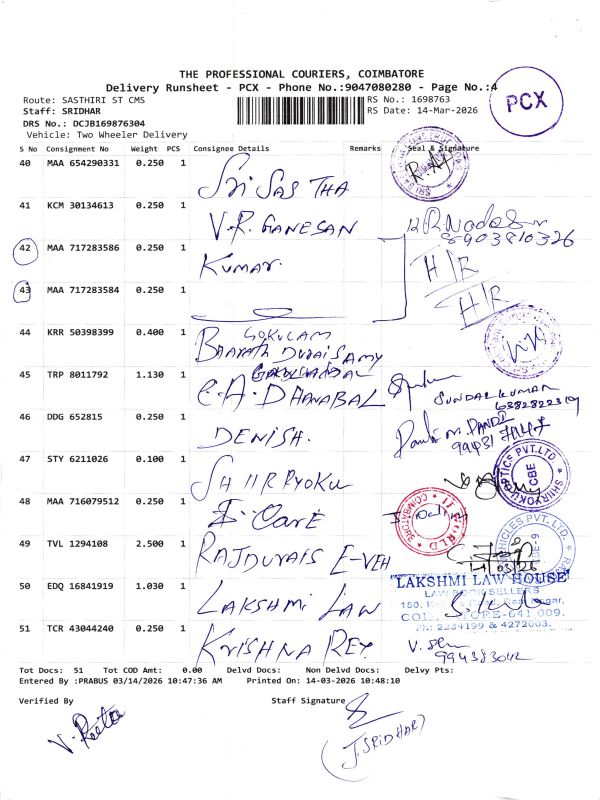 THE PROFESSIONAL COURIERS, COIMBATORE
Delivery Runsheet - PCX - Phone No.:9047080280 - Page No.:4
PCX
Route: SASTHIRI ST CMS
RS No.: 1698763
Staff: SRIDHAR
RS Date: 14-Mar-2026
DRS No.: DCJB169876304
Vehicle: Two Wheeler Delivery
S No Consignment No Weight PCS Consignee Details Remarks Seal & Signature
40 MAA 654290331 0.250 1 Sri SAS THA
41 KCM 30134613 0.250 1 V.R. GANESAN
8903810326
42 MAA 717283586 0.250 1 Kumar H/R
43 MAA 717283584 0.250 1 H/R
44 KRR 50398399 0.400 1 GOKULAM
Bharath Duraisamy
45 TRP 8011792 1.130 1
C.A. DHANABAL
SUNDAR KUMAR
46 DDG 652815 0.250 1 DENISH.
47 STY 6211026 0.100 1 SHIIRRYOKU
48 MAA 716079512 0.250 1 I-CARE
49 TVL 1294108 2.500 1 RAJDURAIS E-VEH
14/03/26
50 EDQ 16841919 1.030 1 LAKSHMI LAW
LAKSHMI LAW HOUSE
LAW BOOK SELLERS
Ph: 2234199 & 4272003.
51 TCR 43044240 0.250 1 KRISHNA REY
Tot Docs: 51 Tot COD Amt: 0.00 Delvd Docs: Non Delvd Docs: Delvy Pts:
Entered By :PRABUS 03/14/2026 10:47:36 AM Printed On: 14-03-2026 10:48:10
Verified By
Staff Signature
(J. SRIDHAR)